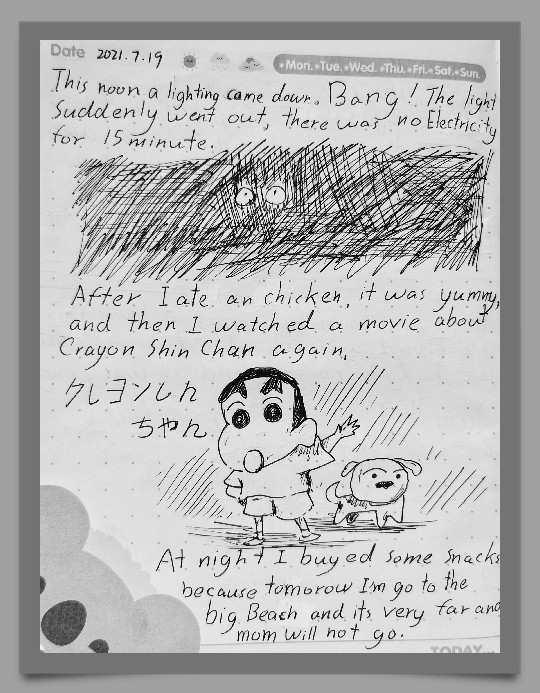 Date 2021.7.19
•Mon.•Tue.•Wed.•Thu.•Fri.•Sat.•Sun.
This noon a lighting came down. Bang! The light
suddenly went out, there was no Electricity
for 15 minute.
After I ate an chicken, it was yummy,
and then I watched a movie about
Crayon Shin Chan again.
クレヨンしん
ちゃん
At night I buyed some snacks
because tomorow I'm go to the
big Beach and its very far and
mom will not go.
TODAY...